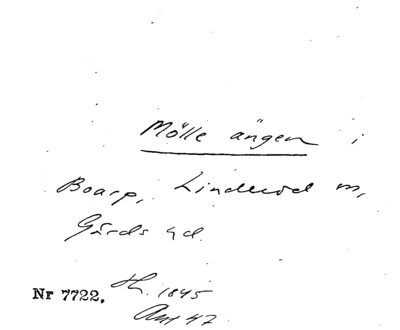 Mölle ängen i
Boarp, Linderöd m,
Gärds hd.
Nr 7722. 1845
47